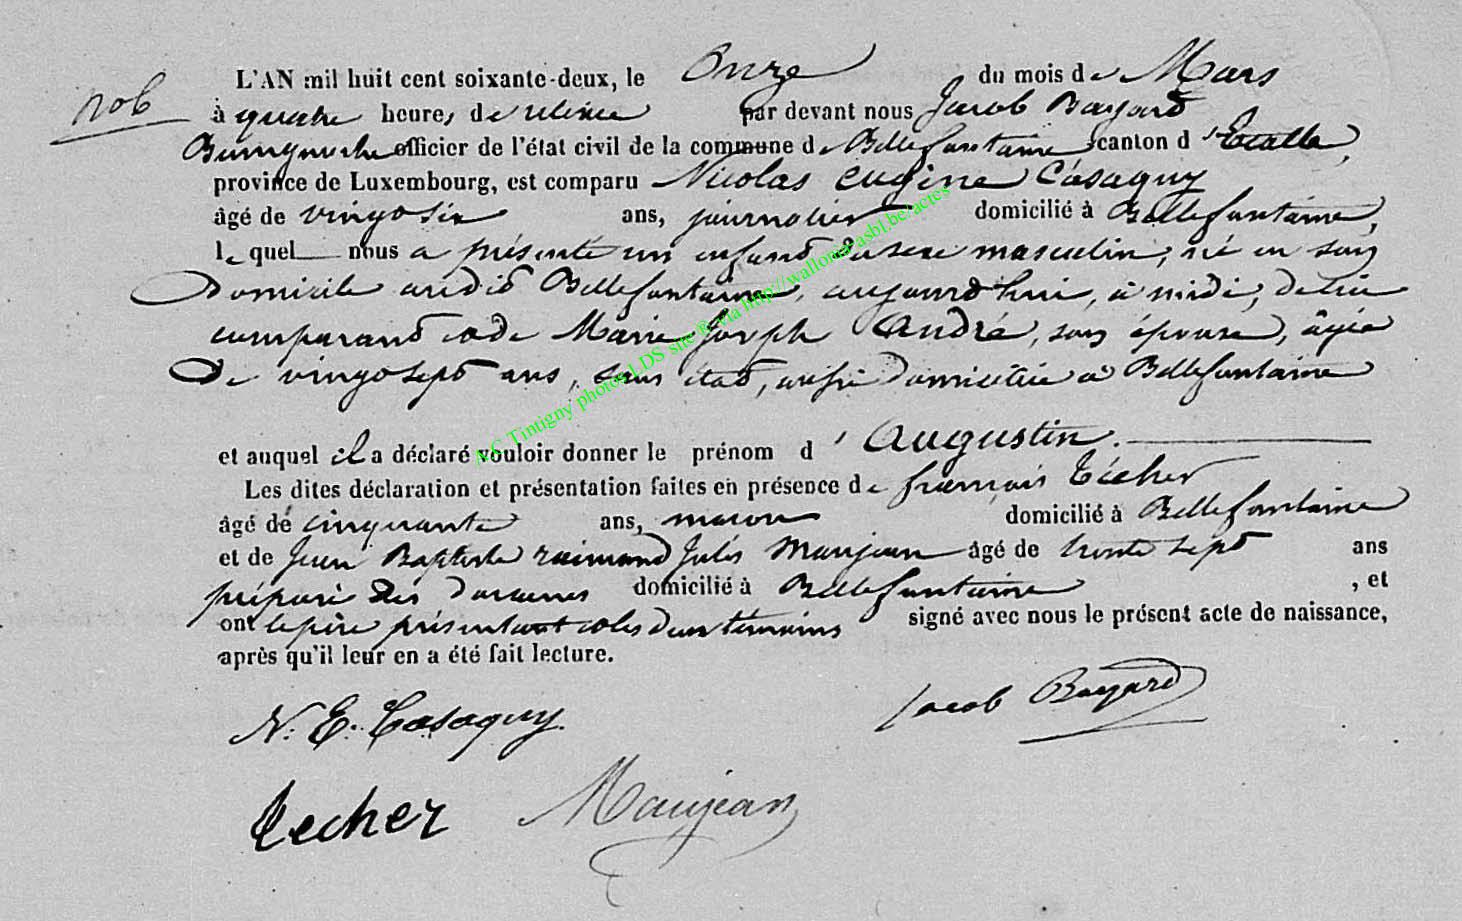 no 6
L'AN mil huit cent soixante-deux, le Onze du mois de Mars
à quatre heures de relevée par devant nous Jacob Bayard
Bourgmestre officier de l'état civil de la commune de Bellefontaine canton d'Etalle,
province de Luxembourg, est comparu Nicolas Eugène Casaquy
âgé de vingt six ans, journalier domicilié à Bellefontaine,
lequel nous a présenté un enfant du sexe masculin, né en son
Domicile audit Bellefontaine, aujourd'hui, à midi, de lui
comparant et de Marie Joseph André, son épouse, âgée
De vingt sept ans, sans état, aussi domiciliée à Bellefontaine
et auquel il a déclaré vouloir donner le prénom d'Augustin.
Les dites déclaration et présentation faites en présence de françois Técher
âgé de cinquante ans, macon domicilié à Bellefontaine
et de Jean Baptiste raimond Jules Maujean âgé de trente sept ans
préposé des douanes domicilié à Bellefontaine, et
ont le père présentant et les deux témoins signé avec nous le présent acte de naissance,
après qu'il leur en a été fait lecture.
N. E. Casaquy Jacob Bayard
Techer Maujean
A.C Tintigny photos LDS site & via http://wallonia-asbl.be/actes